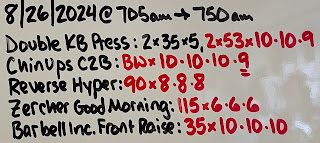 8/26/2024 @ 705am → 750am
Double KB Press: 2x35x5, 2x53x10-10-9
Chinups C2B: BWx10-10-10-9
Reverse Hyper: 90x8-8-8
Zercher Good Morning: 115x6-6-6
Barbell Inc. Front Raise: 35x10-10-10